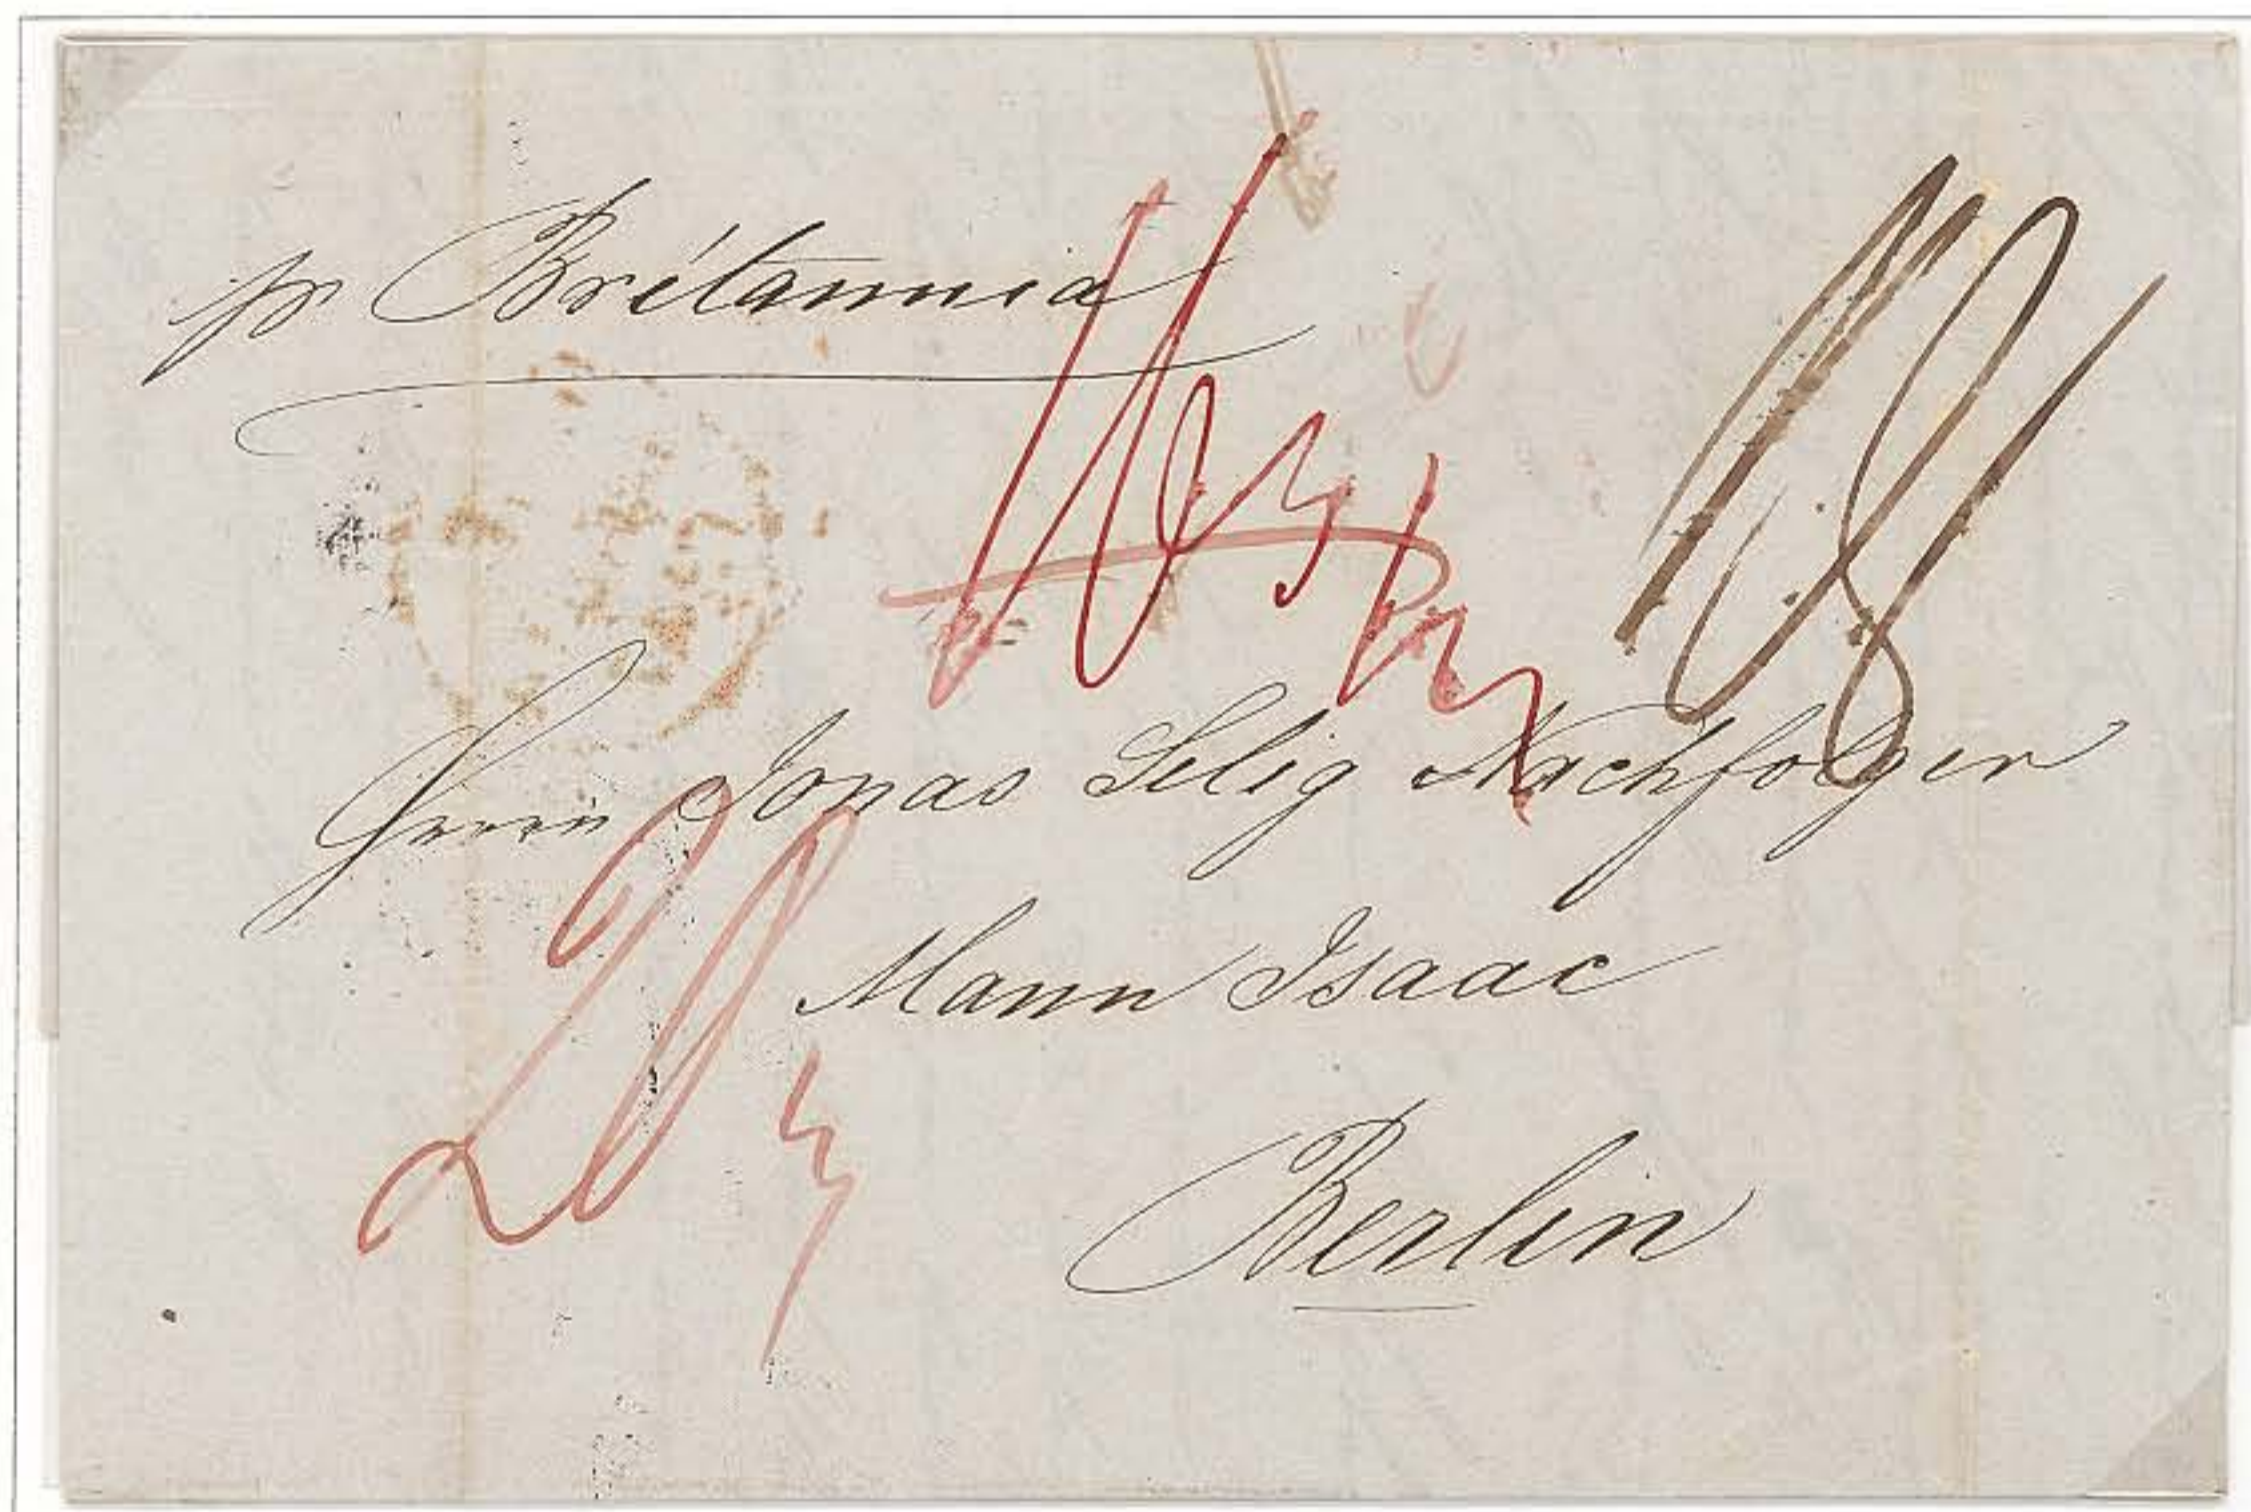 pr Britannia
Herrn Jonas Selig Nachfolger
Mann Isaac
Berlin
20